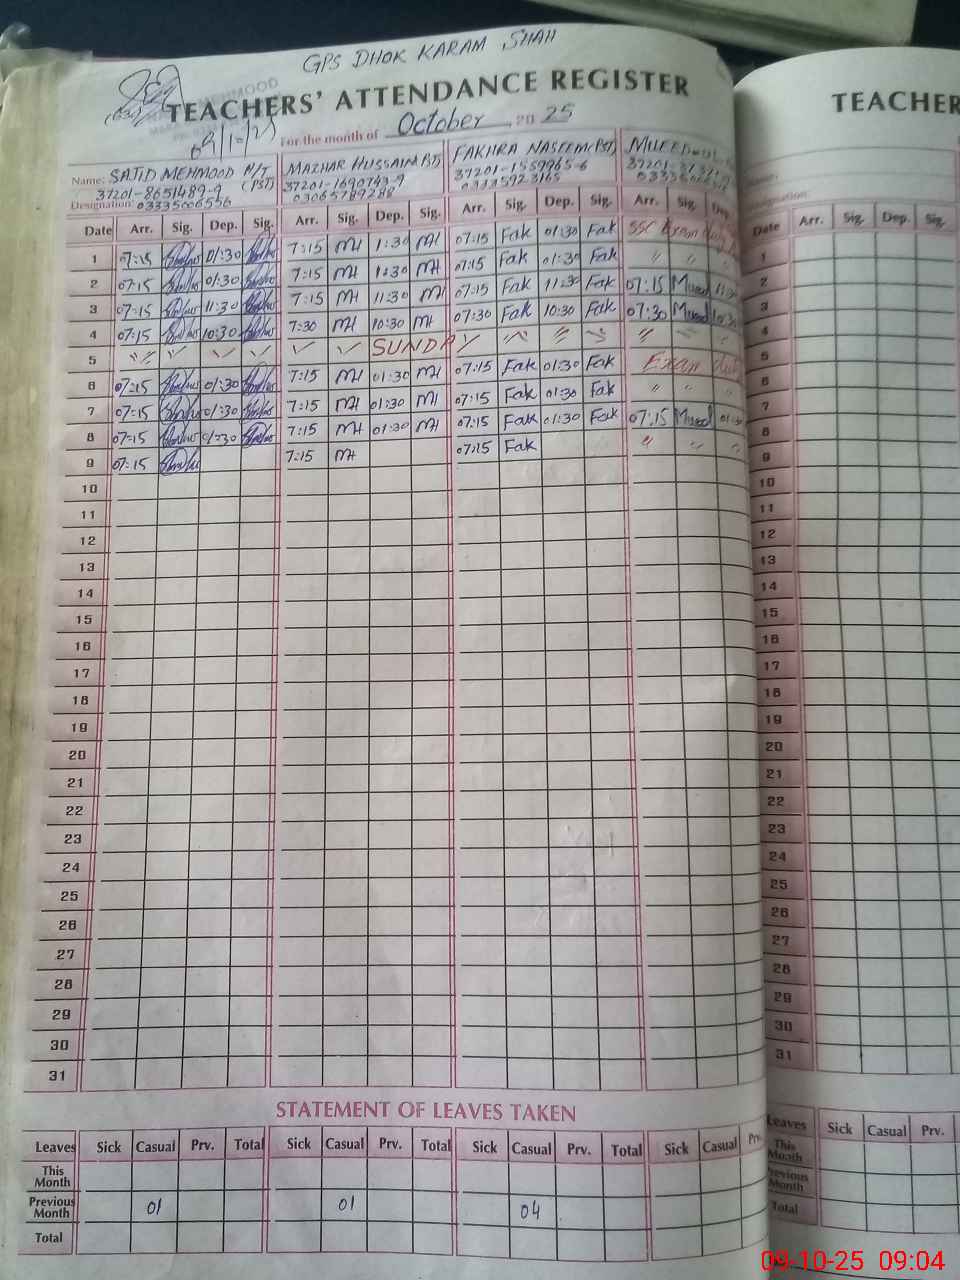 GPS DHOK KARAM SHAH
TEACHERS' ATTENDANCE REGISTER
09/10/25
For the month of October 2025
Name: SAJID MEHMOOD H/T (PST) MAZHAR HUSSAIN PST FAKHRA NASEEM (PST)
37201-8651489-9 37201-1690743-9 37201-1559965-6
Designation: 03335006556 03065789288 03335923165
Date Arr. Sig. Dep. Sig. Arr. Sig. Dep. Sig. Arr. Sig. Dep. Sig. Arr. Sig.
1 07:15 01:30 7:15 MH 1:30 MH 07:15 Fak 01:30 Fak SSC Exam duty
2 07:15 01:30 7:15 MH 1:30 MH 07:15 Fak 01:30 Fak " " "
3 07:15 11:30 7:15 MH 11:30 MH 07:15 Fak 11:30 Fak 07:15 Mureed 11:30
4 07:15 10:30 7:30 MH 10:30 MH 07:30 Fak 10:30 Fak 07:30 Mureed 10:30
5 SUNDAY
6 07:15 01:30 7:15 MH 01:30 MH 07:15 Fak 01:30 Fak Exam duty
7 07:15 01:30 7:15 MH 01:30 MH 07:15 Fak 01:30 Fak " " "
8 07:15 01:30 7:15 MH 01:30 MH 07:15 Fak 01:30 Fak 07:15 Mureed 01:30
9 07:15 7:15 MH 07:15 Fak " " "
10
11
12
13
14
15
16
17
18
19
20
21
22
23
24
25
26
27
28
29
30
31
STATEMENT OF LEAVES TAKEN
Leaves Sick Casual Prv. Total Sick Casual Prv. Total Sick Casual Prv. Total Sick Casual Prv.
This Month
Previous Month 01 01 04
Total
TEACHER
Date Arr. Sig. Dep. Sig.
1
2
3
4
5
6
7
8
9
10
11
12
13
14
15
16
17
18
19
20
21
22
23
24
25
26
27
28
29
30
31
Leaves Sick Casual Prv.
This Month
Previous Month
Total
09-10-25 09:04